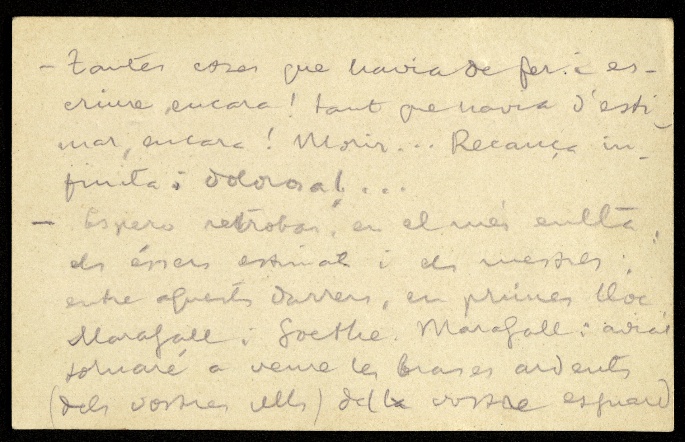 — Tantes coses que havia de fer i es-
criure, encara! tant que havia d'esti-
mar, encara! Morir... Recança in-
finita i dolorosa!...
— Espero retrobar, en el més enllà,
els éssers estimats i els mestres;
entre aquests darrers, en primer lloc
Maragall i Goethe. Maragall: aviat
tornaré a veure les brases ardents
(dels vostres ulls) de la vostre esguard